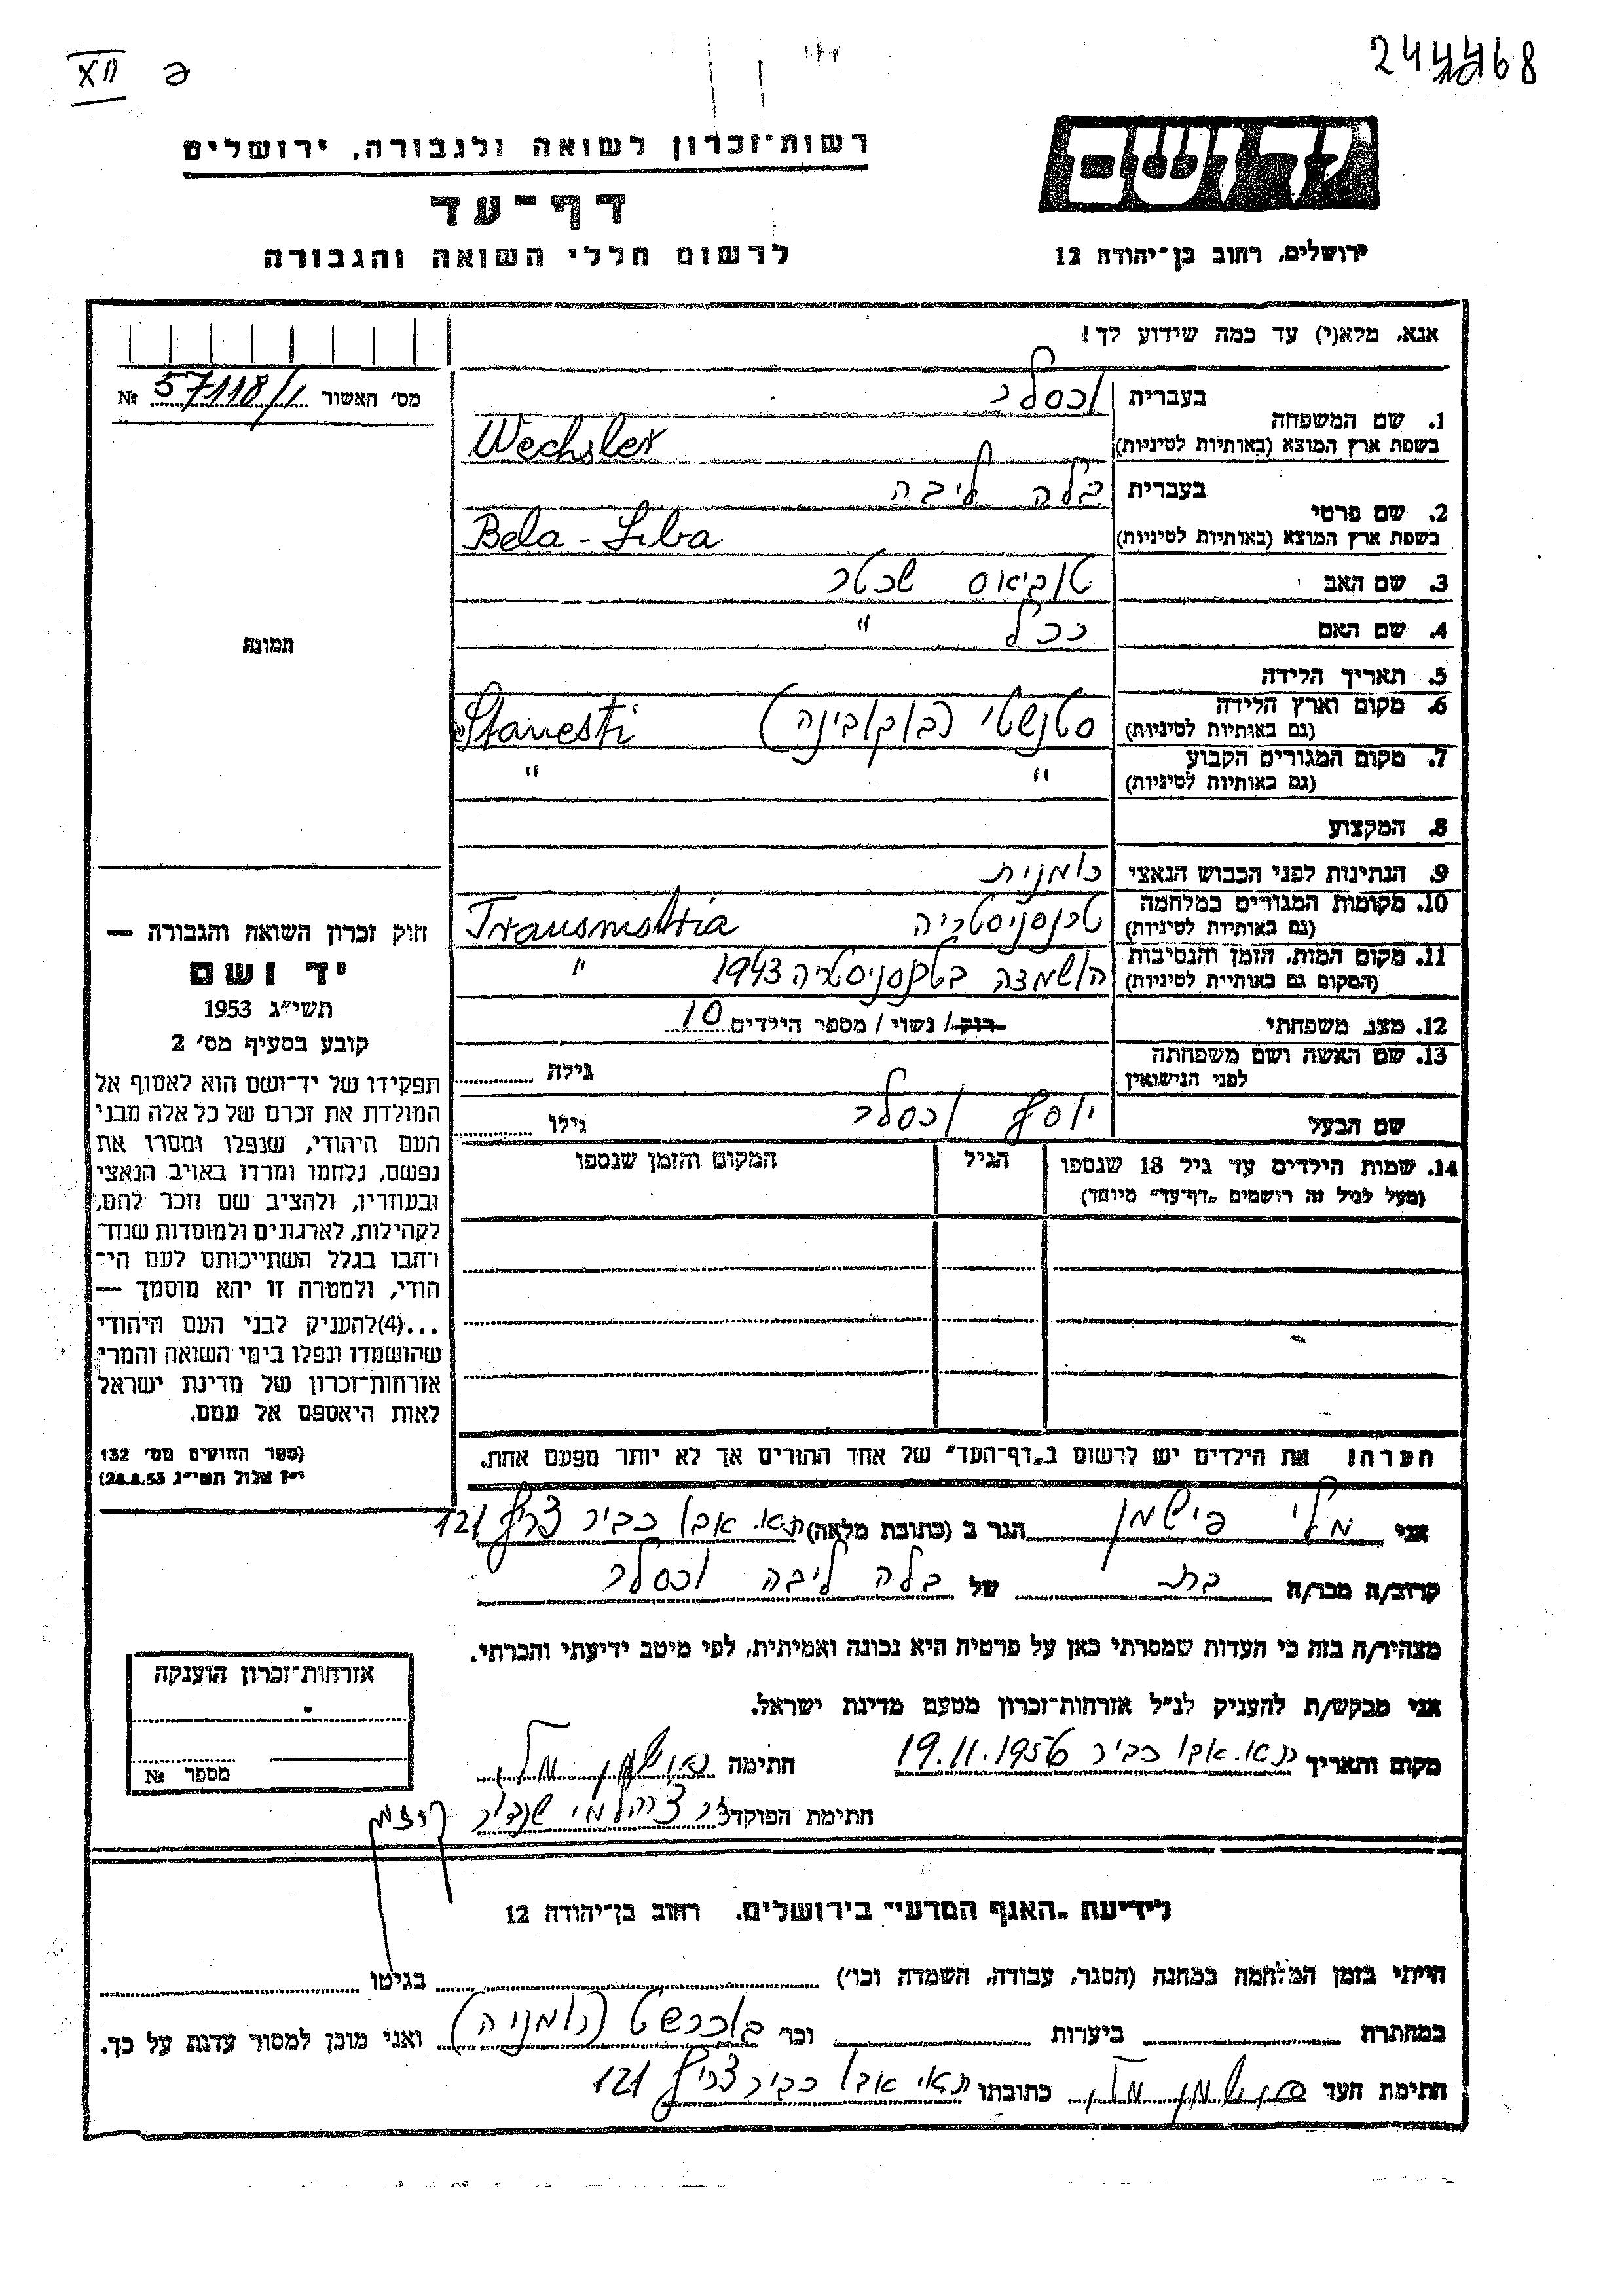 244468
XII
רשות־זכרון לשואה ולגבורה, ירושלים
ידושם
דף־עד
לרשום חללי השואה והגבורה
ירושלים, רחוב בן־יהודה 12
אנא, מלא(י) עד כמה שידוע לך!
מס' האשור 57118/1 №
1. שם המשפחה
בעברית וכסלר
בשפת ארץ המוצא (באותיות לטיניות) Wechsler
2. שם פרטי
בעברית בלה ליבה
בשפת ארץ המוצא (באותיות לטיניות) Bela - Liba
3. שם האב טוביאס שכטר
4. שם האם רכל "
5. תאריך הלידה
6. מקום וארץ הלידה (גם באותיות לטיניות) סטנשטי (בוקובינה) Stanesti
7. מקום המגורים הקבוע (גם באותיות לטיניות) " "
8. המקצוע
9. הנתינות לפני הכבוש הנאצי רומנית
10. מקומות המגורים במלחמה (גם באותיות לטיניות) טרנסניסטריה Transnistria
11. מקום המות, הזמן והנסיבות (המקום גם באותיות לטיניות) הושמדה בטרנסניסטריה 1943 "
12. מצב משפחתי רווק / נשוי / מספר הילדים 10
13. שם האשה ושם משפחתה לפני הנישואין גילה
שם הבעל יוסף וכסלר גילו
14. שמות הילדים עד גיל 18 שנספו הגיל המקום והזמן שנספו
(מעל לגיל זה רושמים „דף־עד" מיוחד)
תמונה
חוק זכרון השואה והגבורה —
יד ושם
תשי"ג 1953
קובע בסעיף מס' 2
תפקידו של יד־ושם הוא לאסוף אל
המולדת את זכרם של כל אלה מבני
העם היהודי, שנפלו ומסרו את
נפשם, נלחמו ומרדו באויב הנאצי
ובעוזריו, ולהציב שם וזכר להם,
לקהילות, לארגונים ולמוסדות שנח־
רחבו בגלל השתייכותם לעם הי־
הודי, ולמטרה זו יהא מוסמך —
...(4)להעניק לבני העם היהודי
שהושמדו ונפלו בימי השואה והמרי
אזרחות־זכרון של מדינת ישראל
לאות היאספם אל עמם.
(ספר החוקים מס' 132
י"ז אלול תשי"ג 28.8.53)
הערה! את הילדים יש לרשום ב„דף־העד" של אחד ההורים אך לא יותר מפעם אחת.
אני מלי פישמן הגר ב (כתובת מלאה) ת.א. אבו כביר צריף 121
קרוב/ה מכר/ה בת של בלה ליבה וכסלר
מצהיר/ה בזה כי העדות שמסרתי כאן על פרטיה היא נכונה ואמיתית, לפי מיטב ידיעתי והכרתי.
אני מבקש/ת להעניק לנ"ל אזרחות־זכרון מטעם מדינת ישראל.
מקום ותאריך ת.א. אבו כביר 19.11.1956 חתימה פישמן מלי
חתימת הפוקד
אזרחות־זכרון הוענקה
מספר №
לידיעת „האגף המדעי" בירושלים, רחוב בן־יהודה 12
הייתי בזמן המלחמה במחנה (הסגר, עבודה, השמדה וכו') בגיטו
במחתרת ביערות וכו' בוכרשט (רומניה) ואני מוכן למסור עדות על כך.
חתימת העד פישמן מלי כתובתו ת.א. אבו כביר צריף 121